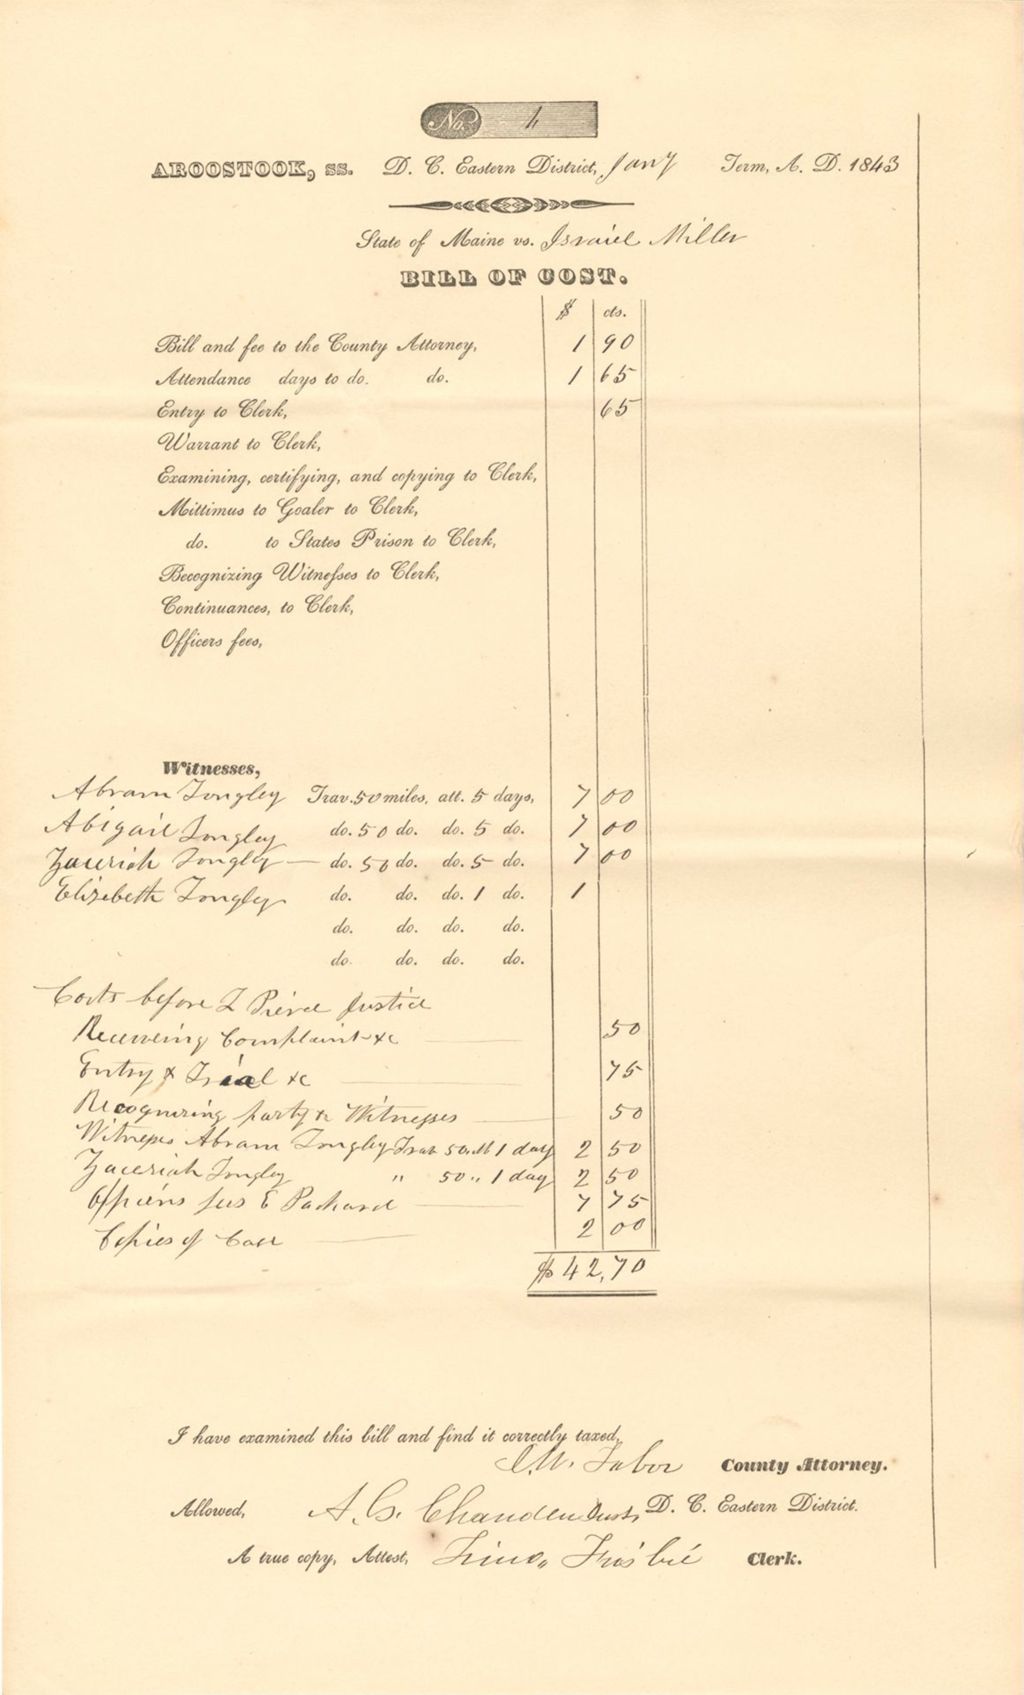 No. 4
AROOSTOOK, ss. D. C. Eastern District, Jany Term, A. D. 1843
State of Maine vs. Israiel Miller
BILL OF COST.
$ cts.
Bill and fee to the County Attorney, 1 90
Attendance days to do. do. 1 65
Entry to Clerk, 65
Warrant to Clerk,
Examining, certifying, and copying to Clerk,
Mittimus to Goaler to Clerk,
do. to States Prison to Clerk,
Recognizing Witnesses to Clerk,
Continuances, to Clerk,
Officers fees,
Witnesses,
Abram Longley Trav. 50 miles, att. 5 days, 7 00
Abigail Longley do. 50 do. do. 5 do. 7 00
Zaceriah Longley do. 50 do. do. 5 do. 7 00
Elizebeth Longley do. do. do. 1 do. 1
do. do. do. do.
do. do. do. do.
Costs before L Pierce Justice
Receiveing Complaint &c 50
Entry & Trial &c 75
Recognizing party & Witnesses 50
Witnesses Abram Longley Trav 50 M 1 day 2 50
Zaceriah Longley " 50 " 1 day 2 50
Officers fees E Packard 7 75
Copies of Case 2 00
$42,70
I have examined this bill and find it correctly taxed,
Tabor County Attorney.
Allowed, A. G. Chandler Just. D. C. Eastern District.
A true copy, Attest, Frisbie Clerk.